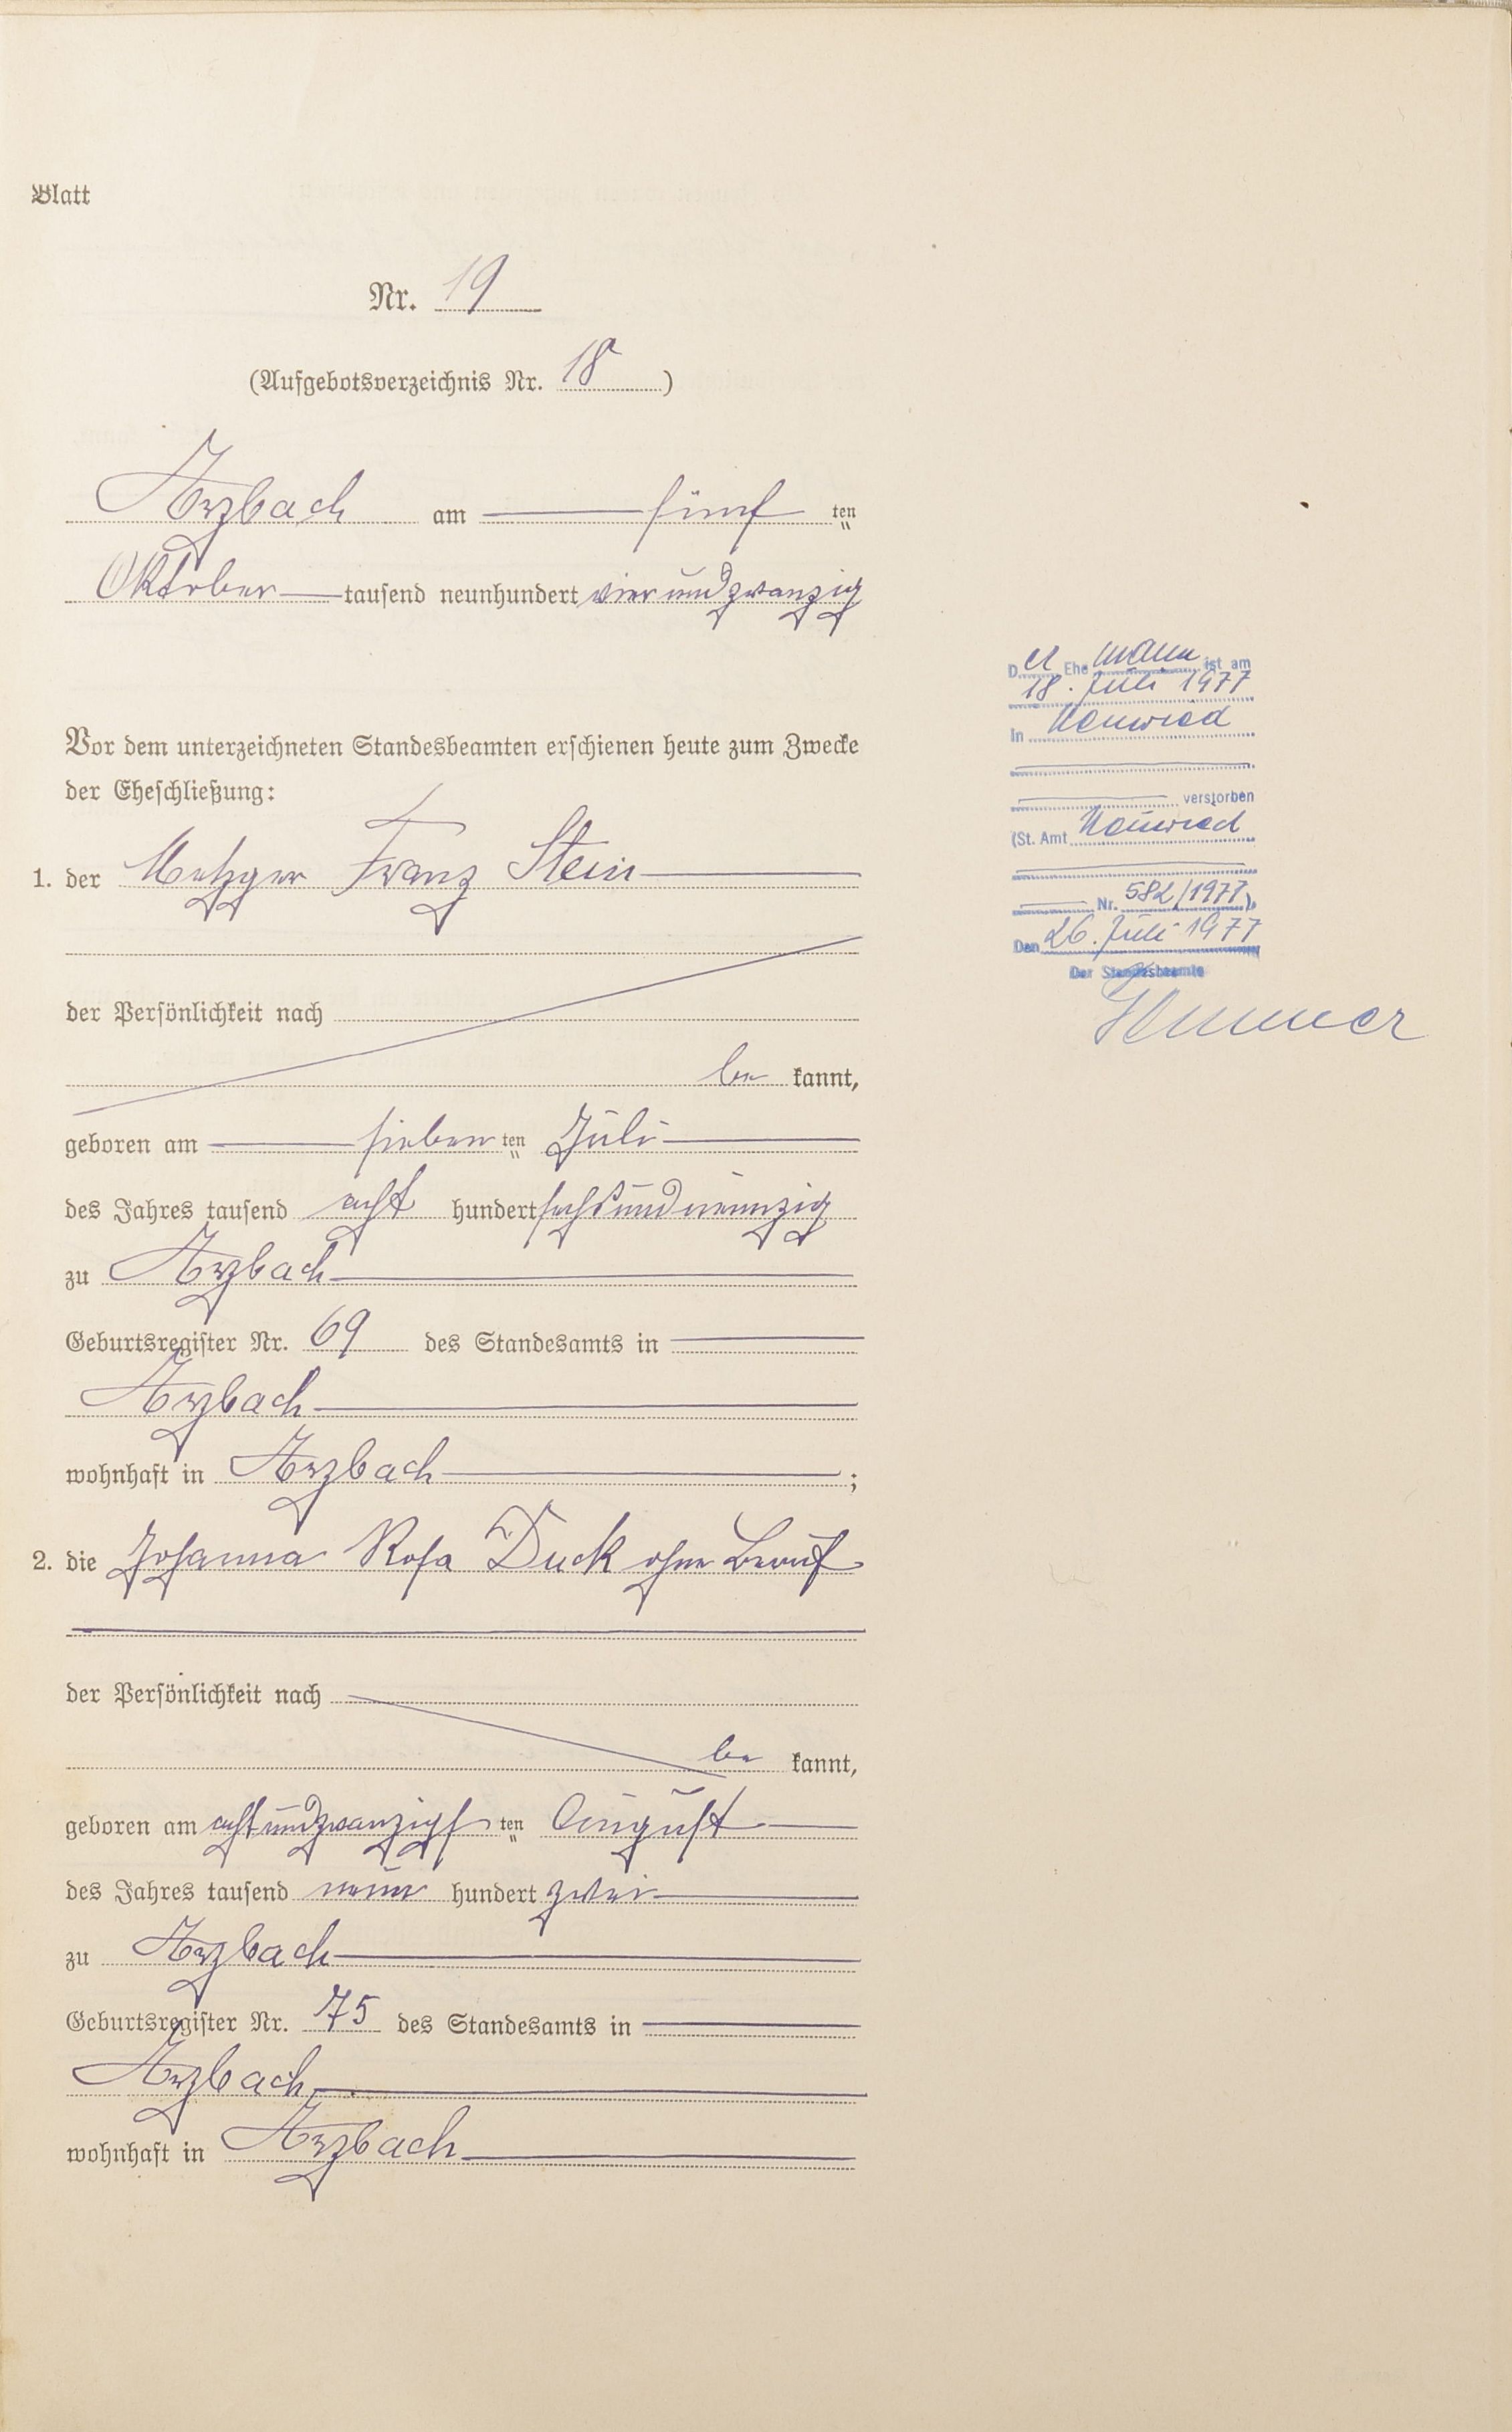 Blatt
Nr. 19
(Aufgebotsverzeichnis Nr. 18)
Arzbach am fünf ten
Oktober tausend neunhundert vierundzwanzig
Vor dem unterzeichneten Standesbeamten erschienen heute zum Zwecke
der Eheschließung:
1. der Metzger Franz Stein
der Persönlichkeit nach
be kannt,
geboren am sieben ten Juli
des Jahres tausend acht hundert sechsundneunzig
zu Arzbach
Geburtsregister Nr. 69 des Standesamts in
Arzbach
wohnhaft in Arzbach ;
2. die Johanna Rosa Duck ohne Beruf
der Persönlichkeit nach
be kannt,
geboren am achtundzwanzigs ten August
des Jahres tausend neun hundert zwei
zu Arzbach
Geburtsregister Nr. 75 des Standesamts in
Arzbach
wohnhaft in Arzbach
Der Ehemann ist am
18. Juli 1977
in Neuwied
verstorben
(St. Amt Neuwied
Nr. 582/1977).
Den 26. Juli 1977
Der Standesbeamte